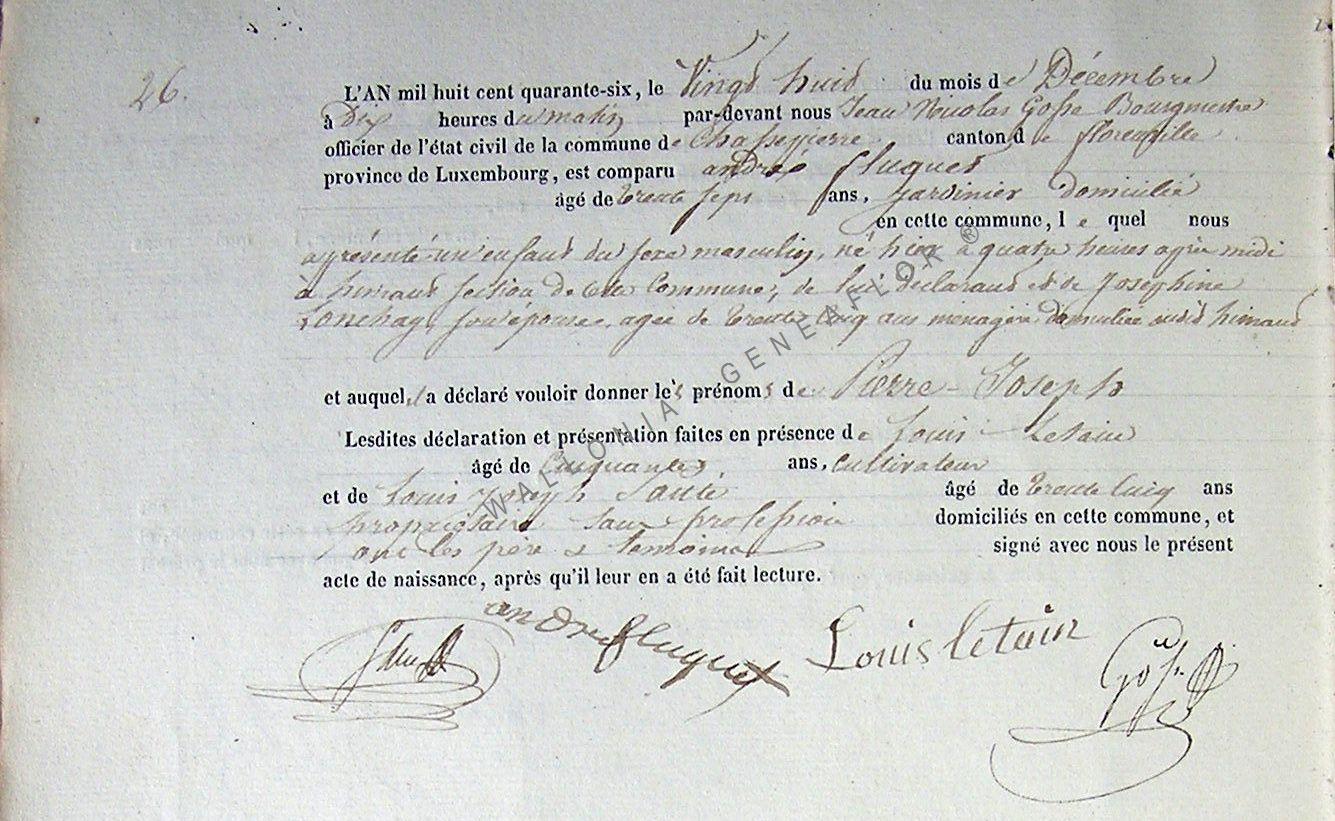 26.
L'AN mil huit cent quarante-six, le Vingt huit du mois de Décembre
à dix heures du matin par-devant nous Jean Nicolas Gosse Bourgmestre
officier de l'état civil de la commune de Chassepierre canton de florenville
province de Luxembourg, est comparu andré fluquet
âgé de trente sept ans, jardinier domicilié
en cette commune, le quel nous
a présenté un enfant du sexe masculin, né hier à quatre heures après midi
à himaut section de cette Commune, de lui déclarant et de Joséphine
Lonchay, son épouse, agée de trente cinq ans ménagère domiciliée audit himaut
et auquel il a déclaré vouloir donner les prénoms de Pierre-Joseph
Lesdites déclaration et présentation faites en présence de Louis Letain
âgé de Cinquante ans, Cultivateur
et de Louis Joseph âgé de trente Cinq ans
propriétaire sans profession domiciliés en cette commune, et
ont les père & temoins signé avec nous le présent
acte de naissance, après qu'il leur en a été fait lecture.
andre fluquet
Louis letain
Gosse
WALLONIA GENEAFLOR ®